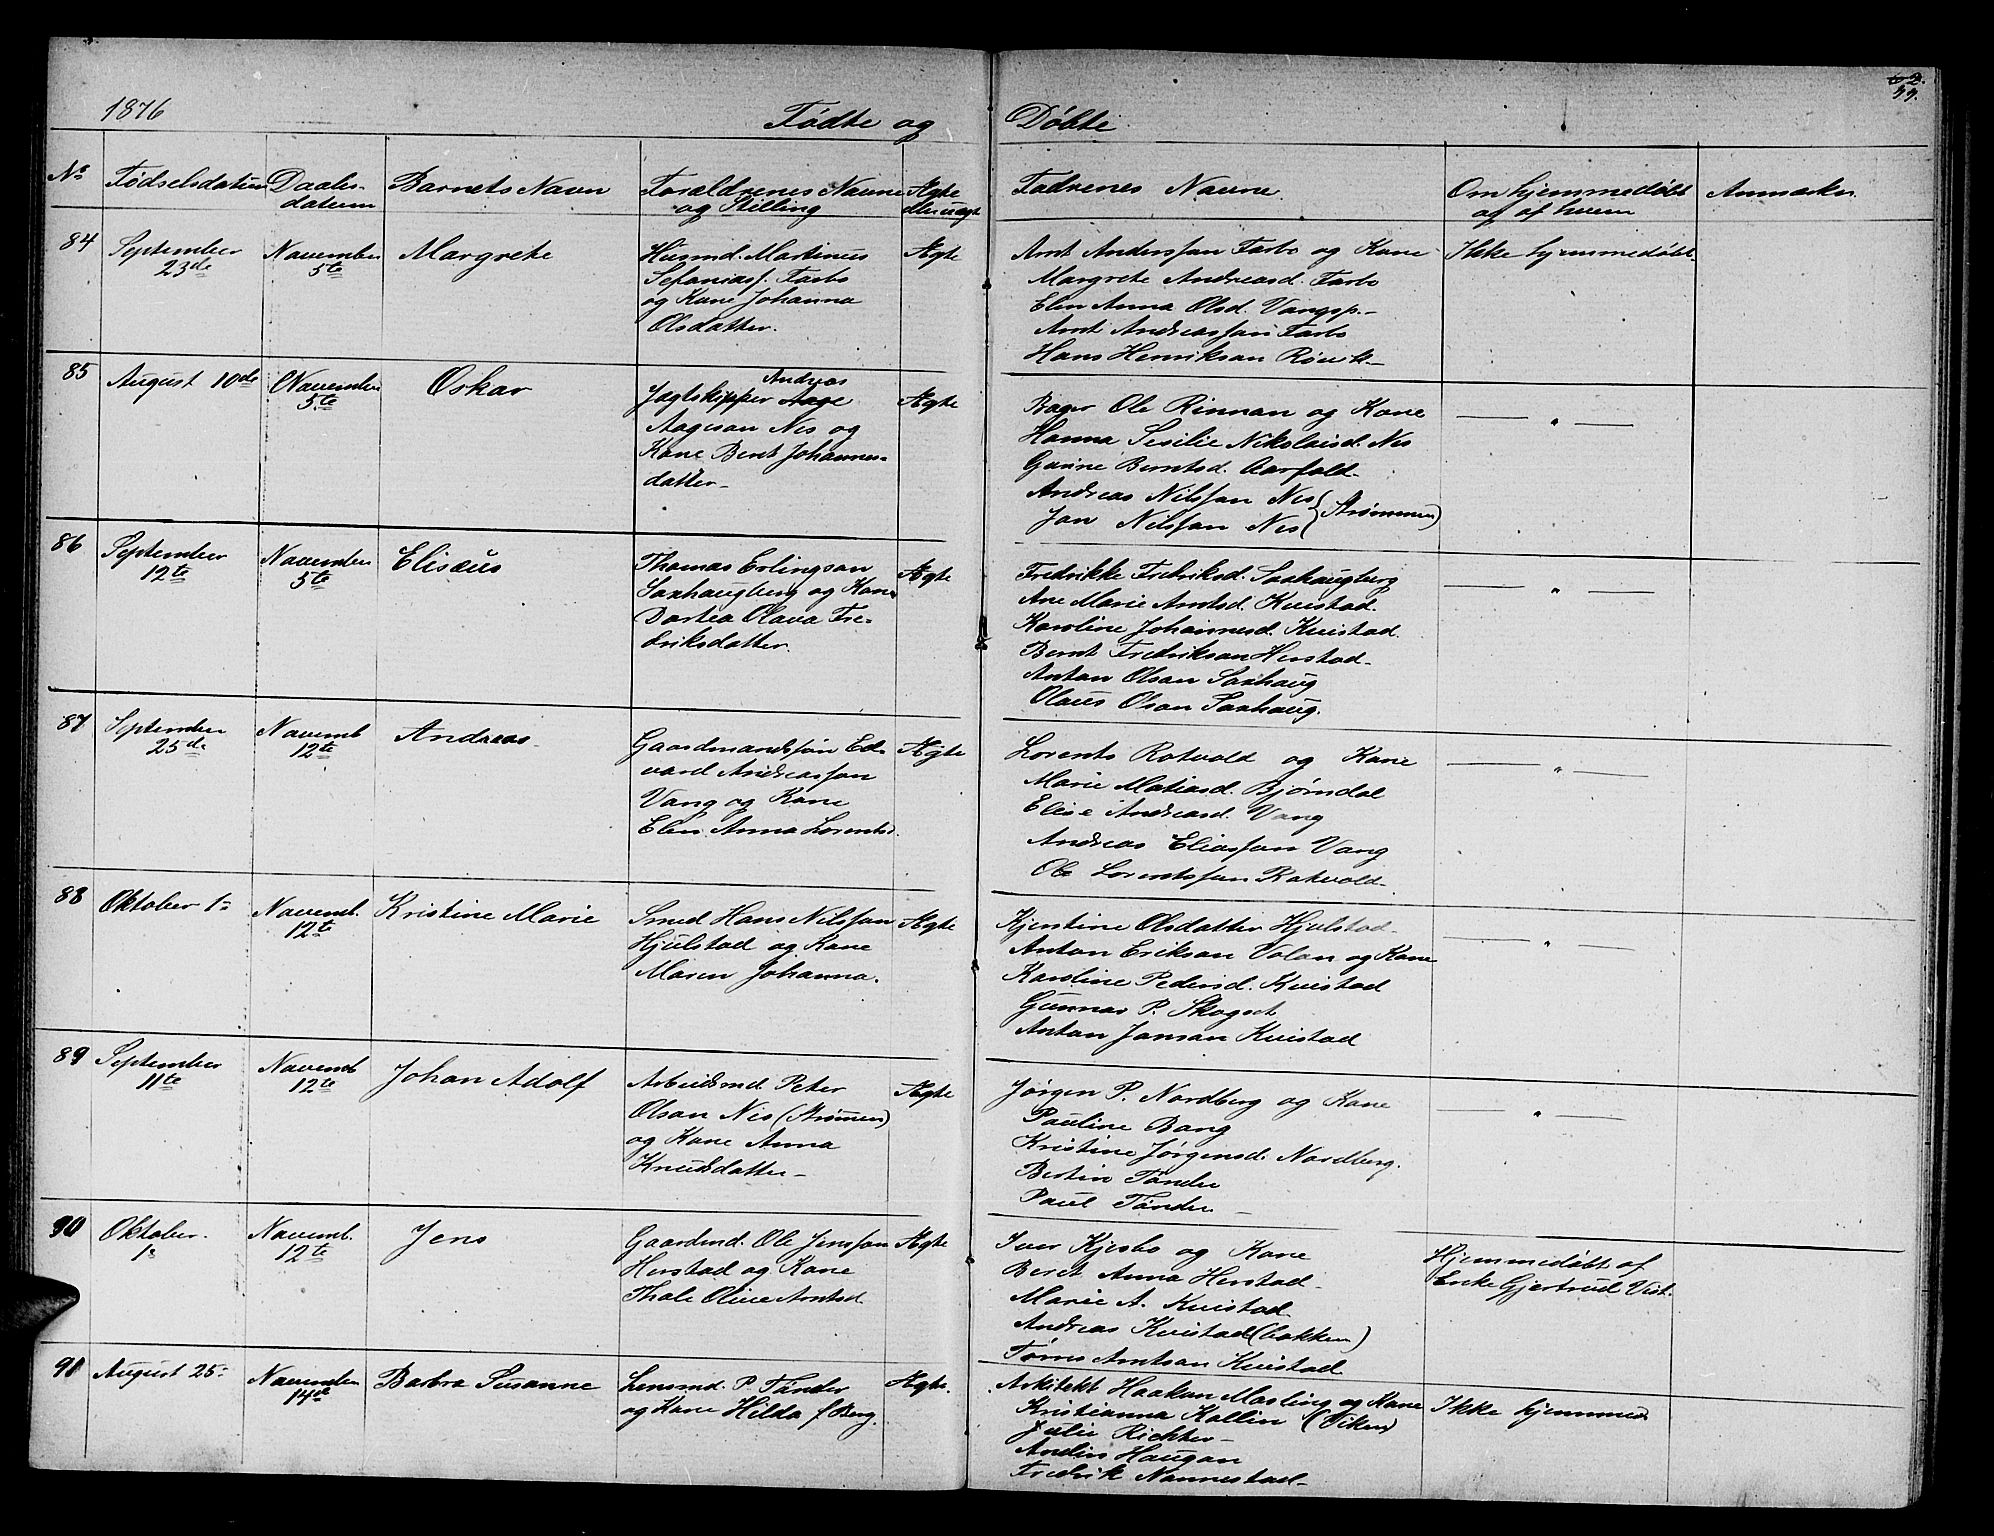 1876
Fødte og
Døbte
62.
99.
No
Fødselsdatum
Daabs-
datum
Barnets Navn
Forældrenes Navne
og Stilling
Ægte
ell. uægte
Fadrenes Navne.
Om hjemmedøbt
af af hvem
Anmærkn.
84
September
23de
November
5te
Margrete
Husmd. Martinus
Sefaniass. Farbo
og Kone Johanna
Olsdatter.
Ægte
Arnt Anderssøn Farbo og Kone
Margrete Andreasd. Farbo
Elen Anna Olsd. Vangsp.-
Arnt Andreassøn Farbo
Hans Henriksøn Røvik-
Ikke hjemmedøbt.
85
August 10de
November
5te
Oskar
Andreas
Jægtskipper Aage
Aagesøn Nes og
Kone Berit Johannes-
datter-
Ægte
Bager Ole Rinnan og Kone
Hanna Sesilie Nikolaisd. Nes
Gurine Berntsd. Aarfald-
Andreas Nilssøn Nes
Jon Nilssøn Nes (Strømmen)
— " —
86
September
12te
November
5te
Elisæus
Thomas Erlingsøn
Saxhaugberg og Kone
Dortea Olava Fre-
driksdatter.
Ægte
Fredrikke Fredriksd. Saxhaugberg
Ane Marie Arntsd. Kvistad.
Karoline Johannesd. Kvistad.
Bernt Fredriksøn Herstad-
Anton Olsøn Saxhaug
Olaus Olsøn Saxhaug.
— " —
87
September
25de
Novemb
12te
Andreas
Gaardmandssøn Ed-
vard Andreassøn
Vang og Kone
Elen Anna Lorentsd.
Ægte
Lorents Rotvold og Kone
Marie Matiasd. Bjørndal
Elise Andreasd. Vang
Andreas Eliassøn Vang
Ole Lorentssøn Rotvold-
— " —
88
Oktober 1-
Novemb.
12te
Kristine Marie
Smed Hans Nilssøn
Hjulstad og Kone
Maren Johanna.
Ægte
Kjerstine Olsdatter Hjulstad-
Anton Eriksøn Volan og Kone
Karoline Pedersd. Kvistad
Gunnar P. Skogset
Anton Jonsøn Kvistad
— " —
89
September
11te
Novemb
12te
Johan Adolf
Arbeidsmd. Peter
Olsøn Nes (Strømen)
og Kone Anna
Knudsdatter-
Ægte
Jørgen P. Nordberg og Kone
Pauline Bang
Kristine Jørgensd. Nordberg.
Bertin Tønder
Paul Tønder-
— " —
90
Oktober.
1-
Novemb.
12te
Jens
Gaardmd. Ole Jenssøn
Herstad og Kone
Thale Oline Arntsd.
Ægte
Iver Kjesbo og Kone
Beret Anna Herstad-
Marie A. Kvistad
Andreas Kvistad (bakken)
Tørris Arntsøn Kvistad
Hjemmedøbt af
Enke Gjertrud Vist.
91
August 25-
November
14de
Barbra Susanne
Lensmd. P. Tønder
og Kone Hilda f. Berg.
Ægte.
Arkitekt Haakon Mosling og Kone
Kristianna Kollin (Viken)
Julie Richter-
Andin Haugan
Fredrik Nannestad-
Ikke hjemmed.